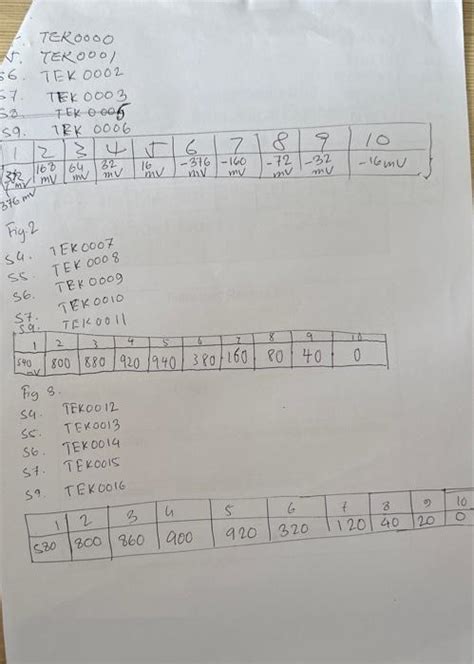 TEK0000
5. TEK0001
S6. TEK 0002
S7. TEK 0003
S8 TEK 0005
S9. TEK 0006
1 2 3 4 5 6 7 8 9 10
392 mV 168 mV 64 mV 32 mV 16 mV -376 mV -160 mV -72 mV -32 mV -16 mV
376 mV
Fig.2
S4. TEK0007
S5. TEK0008
S6. TEK0009
S7. TEK0010
S9. TEK0011
1 2 3 4 5 6 7 8 9 10
540 mV 800 880 920 940 380 160 80 40 0
Fig 3.
S4. TEK0012
S5. TEK0013
S6. TEK0014
S7. TEK0015
S9. TEK0016
1 2 3 4 5 6 7 8 9 10
580 800 860 900 920 320 120 40 20 0